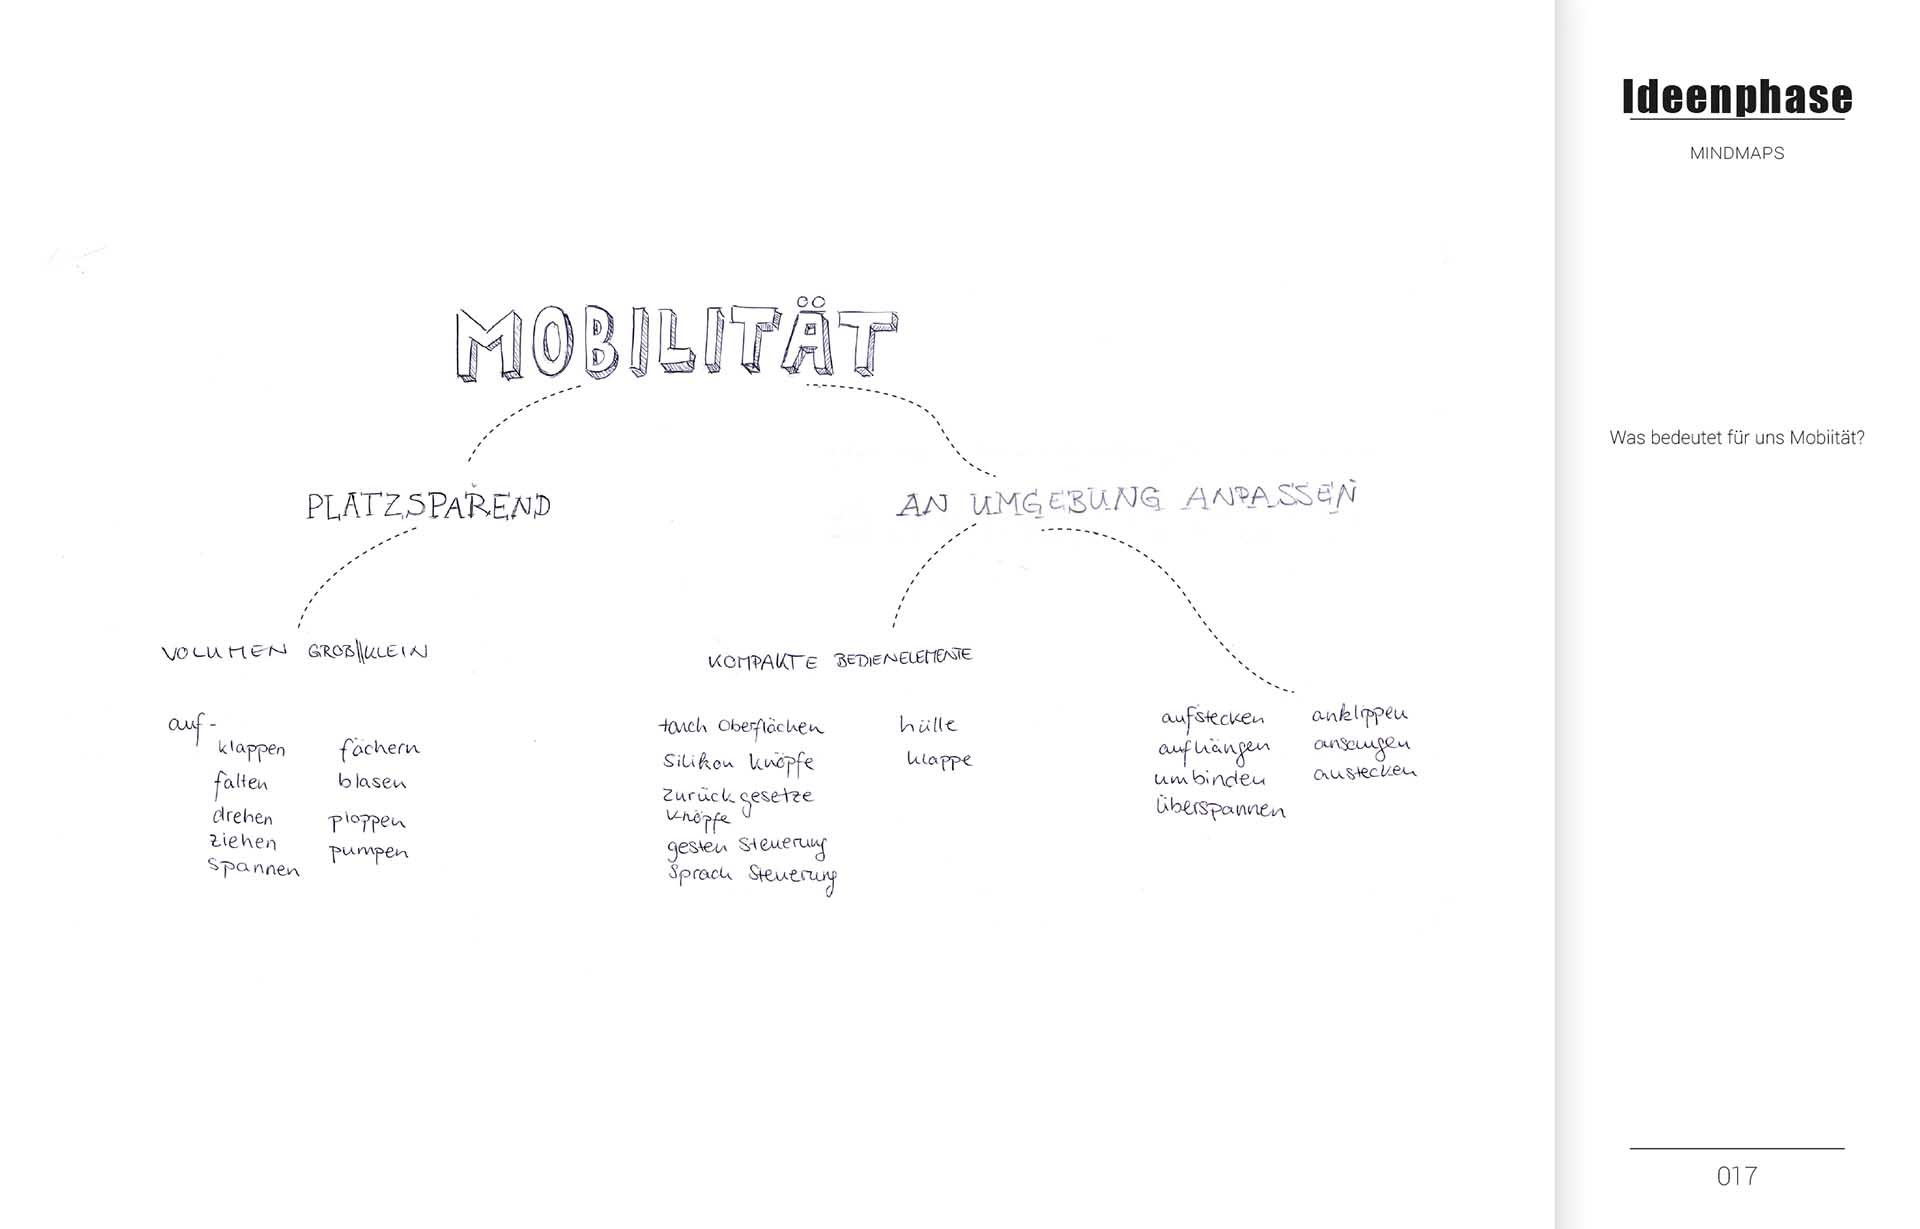 Ideenphase
MINDMAPS
Was bedeutet für uns Mobiität?
MOBILITÄT
PLATZSPAREND
AN UMGEBUNG ANPASSEN
VOLUMEN GROß||KLEIN
auf-
klappen fächern
falten blasen
drehen ploppen
ziehen pumpen
spannen
KOMPAKTE BEDIENELEMENTE
touch Oberflächen hülle
Silikon Knöpfe klappe
Zurückgesetze
Knöpfe
gesten Steuerung
Sprach Steuerung
aufstecken anklippen
aufhängen ansaugen
umbinden anstecken
überspannen
017